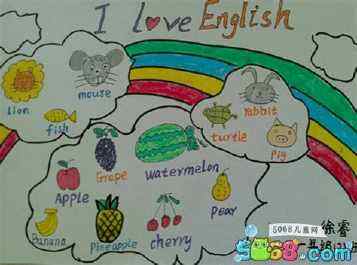 I love English
lion
mouse
fish
rabbit
turtle
pig
Grape
watermelon
Apple
pear
Banana
Pineapple
cherry
5068儿童网
徐睿
5068.com